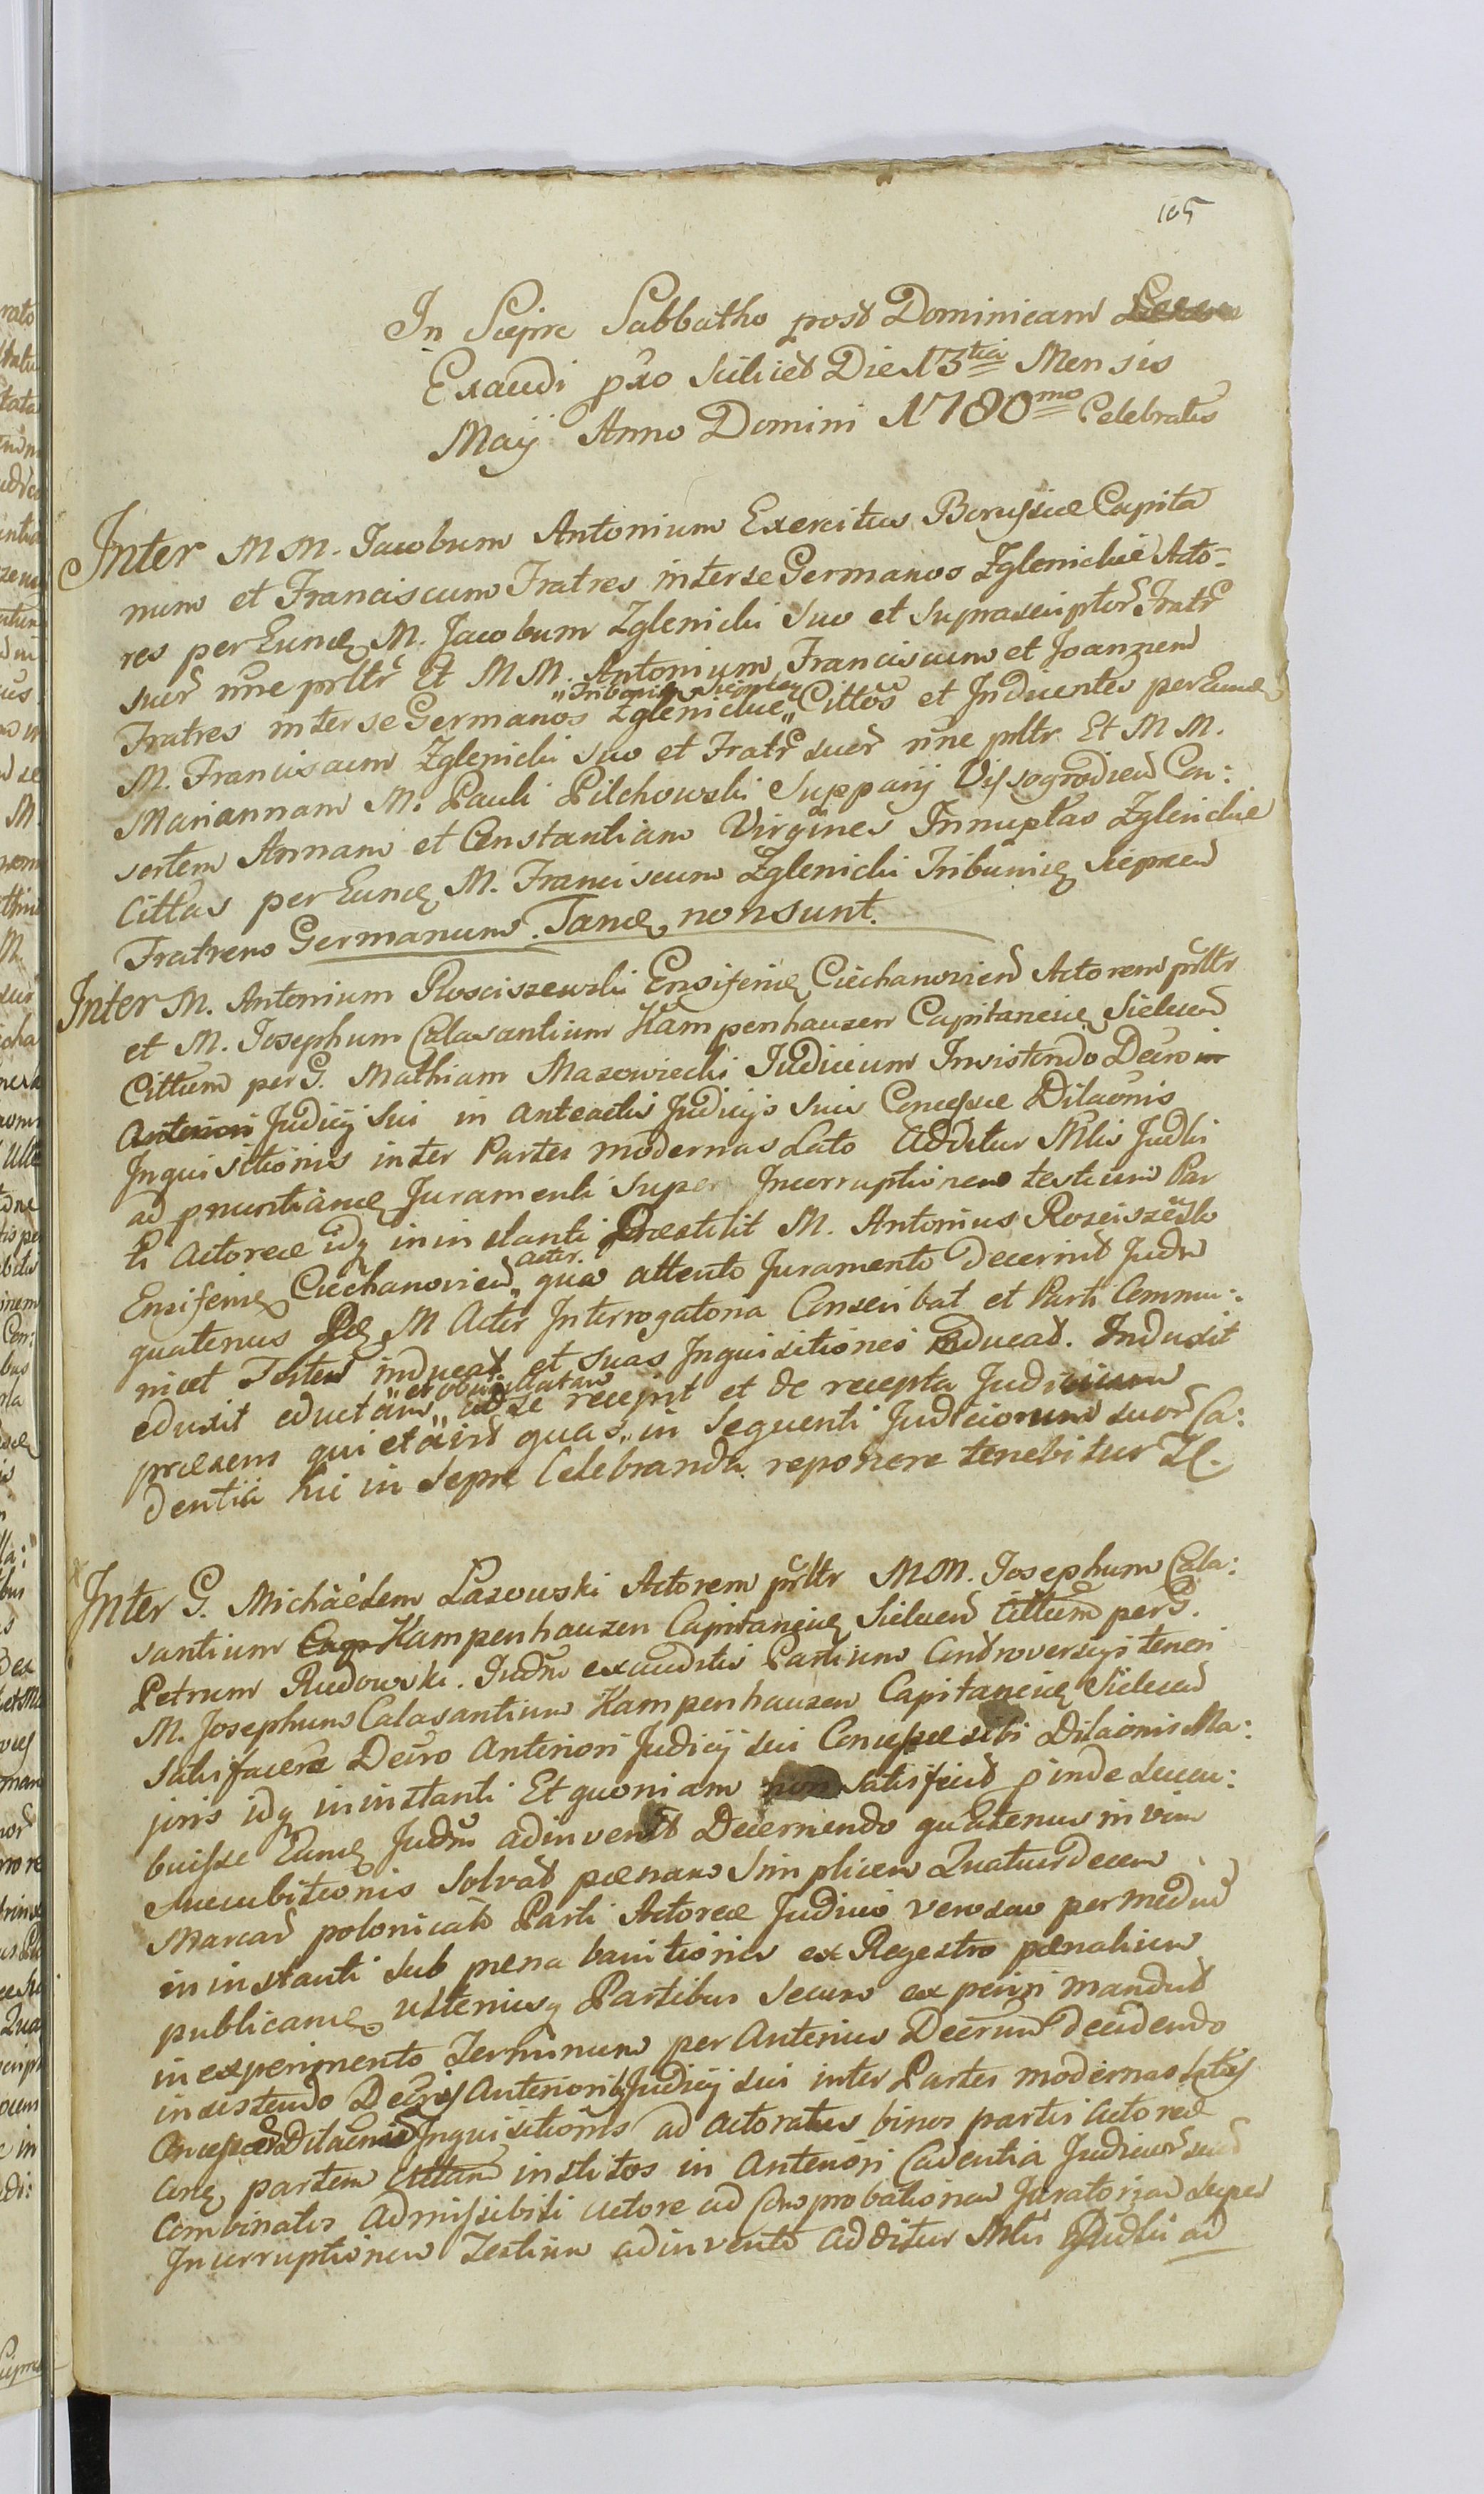 105
In Siepre Sabbatho post Dominicam
Exaudi pro scilicet Die 13tia Mensis
Maij Anno Domini 1780mo Celebratis
Inter MM. Jacobum Antonium Exercitus Borussiae Capita
num et Franciscum Fratres inter se Germanos Zglenickie Acto-
res per Eunde M. Jacobum Zglenicki suo et suprascriptor Fratr
suor nne prltr Et MM. Antonium Franciscum et Joannem
Fratres inter se Germanos Zglenickie Cittos et Inducentes per Eunde
M. Franciscum Zglenicki suo et Fratr suor nne prltr Et MM.
Mariannam M. Pauli Pilchowski Supparij Vissogrodien Con:
sortem Annam et Constantiam Virgines Innuptas Zglenickie
Cittas per Eunde M. Franciscum Zglenicki Tribunie Siepren
Fratrem Germanum. Tande non sunt.
Inter M. Antonium Rosciszewski Ensiferie Ciechanovien Actorem prltr
et M. Josephum Calasantium Kampenhauzen Capitaneie Sielucen
Cittum per G. Mathiam Mazowiecki Judicium Insistendo Decro in
Anteriori Judicij sui in anteactis Judicijs suis Concessae Dilaonis
Inquisitionis inter Partes modernas Lato Additur Mlis Judli
ad pnuntiande Juramenti super Incorruptionem testium Par
ti Actoreae idq in instanti Praestitit M. Antonius Rosciszewski
Ensiferie Ciechanovien actor. quo attento Juramento Decernit Judm
quatenus M Actor Interrogatoria Conscribat et Parti Commu:
nicet Testes inducat et suas Inquisitiones educat. Induxit
eduxit eductam et obsigillatam ad se recepit et de recepta Judicium
praesens quietavit quas in sequenti Judiciorum suor Ca:
dentia hic in Sepre Celebranda reponere tenebitur Il.
Inter G. Michaelem Lazowski Actorem prltr MM. Josephum Cala:
santium Cap Kampenhauzen Capitaneie Sielucen Cittum per G.
Petrum Rudowski. Judm exauditis Partium Controversijs teneri
M. Josephum Calasantium Kampenhauzen Capitaneie Sielucen
satisfacere Decro Anteriori Judicij sui Concessae sibi Dilaonis Ma:
joris idq in instanti Et quoniam non satisfecit pinde succu:
buisse Eunde Judm adinvenit Decernendo quatenus in vim
succubitionis solvat paenam simplicem Quatuordecem
Marcar polonicalo Parti Actoreae Judicio vero suo per medium
in instanti sub paena banitionis ex Regestro paenalium
publicande ulteriusq Partibus secum experiri mandat
in experimento Terminum per Anterius Decrum decidendo
insistendo Decris Anteriorib Judicij sui inter Partes modernas Latis
Concessae Dilaonis Inquisitionis ad actoratus binos partis actoreae
partem Cittam institos in Anteriori Cadentia Judicior suor
Combinatis admissibili actore ad Comprobationem Juratoriam super
Incorruptionem Testium adinvento additur Mlis Judlis ad